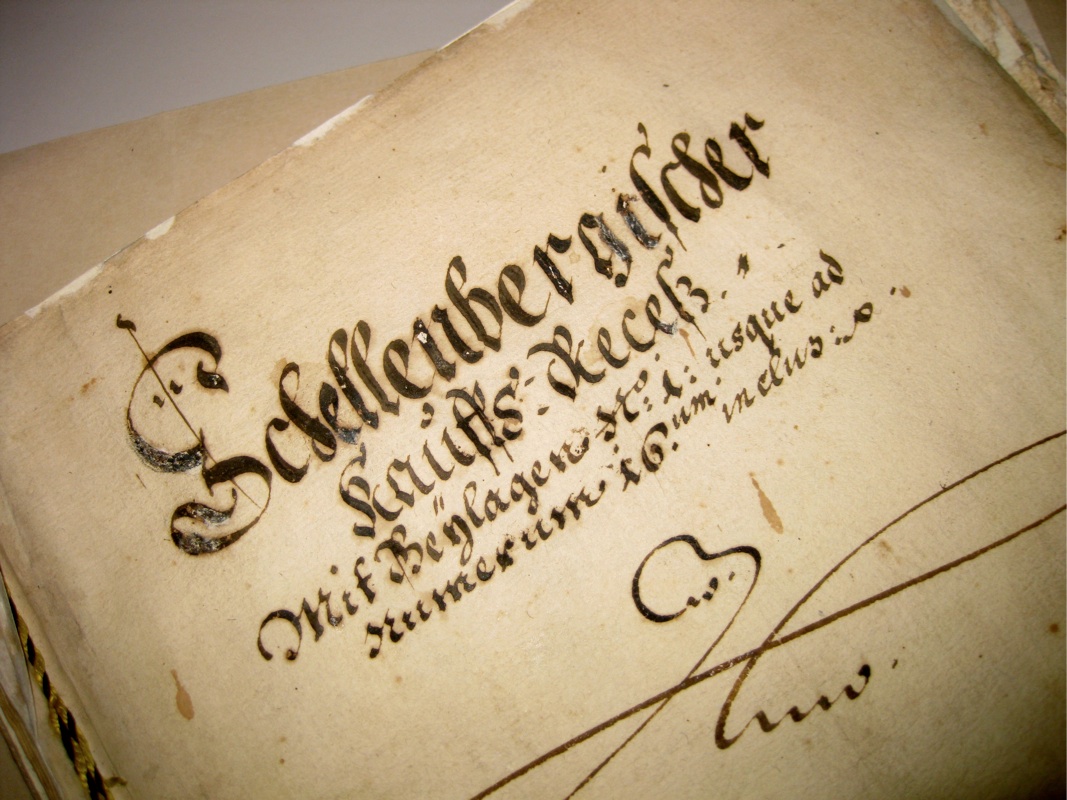 Schellenbergischer
Kauffs-Receß.
Mit Beÿlagen Nº: 1: usque ad
Numerum 16.um inclus:
Anno.